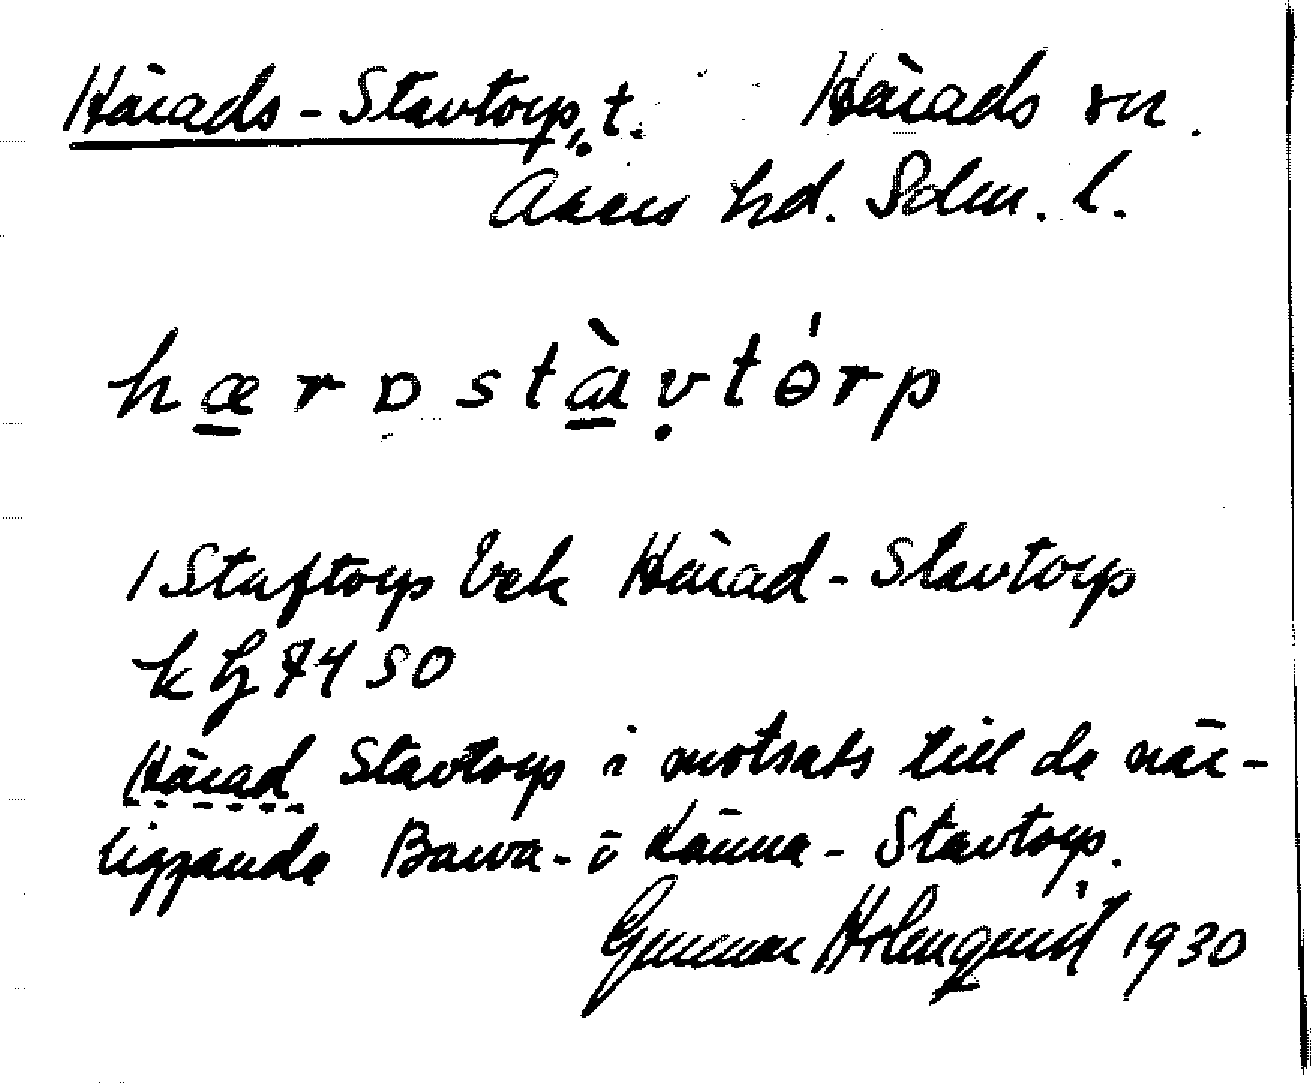 Härads-Stavtorp, t. Härads sn.
Åkers hd. Sdm. l.
hærdstàvtórp
1 Staftorp bek Härad-Stavtorp
k bj 74 50
Härad Stavtorp i motsats till de när-
liggande Barva- o Länna-Stavtorp.
Gunnar Holmquist 1930